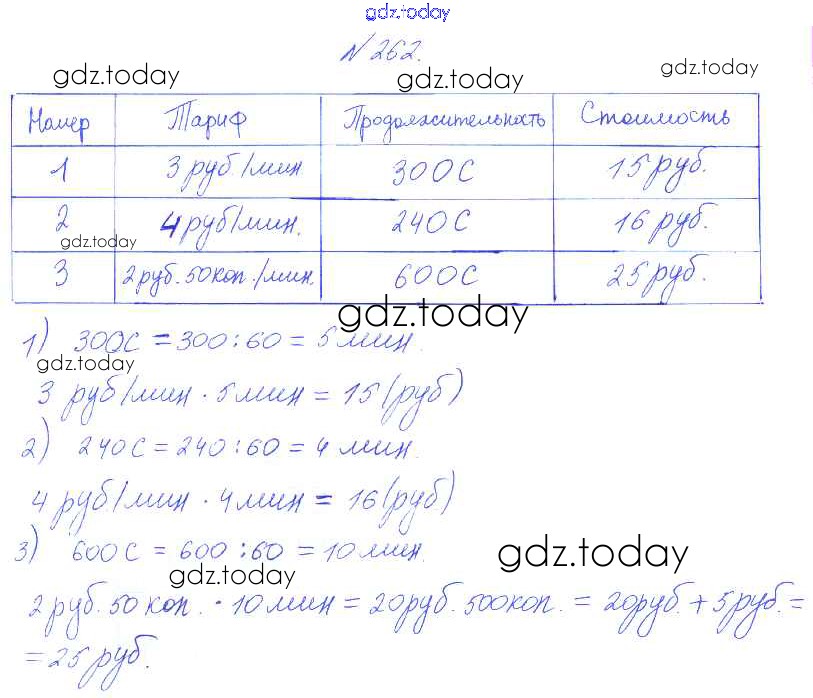 gdz.today
№ 262.
gdz.today gdz.today gdz.today
Номер Тариф Продолжительность Стоимость
1 3 руб/мин 300с 15 руб.
2 4 руб/мин. 240с 16 руб.
gdz.today
3 2 руб. 50 коп./мин. 600с 25 руб.
gdz.today
1) 300с = 300 : 60 = 5 мин.
gdz.today
3 руб/мин · 5 мин = 15 (руб)
2) 240с = 240 : 60 = 4 мин.
4 руб/мин · 4 мин = 16 (руб)
3) 600с = 600 : 60 = 10 мин.
gdz.today
gdz.today
2 руб. 50 коп. · 10 мин = 20 руб. 500 коп. = 20 руб. + 5 руб. =
= 25 руб.